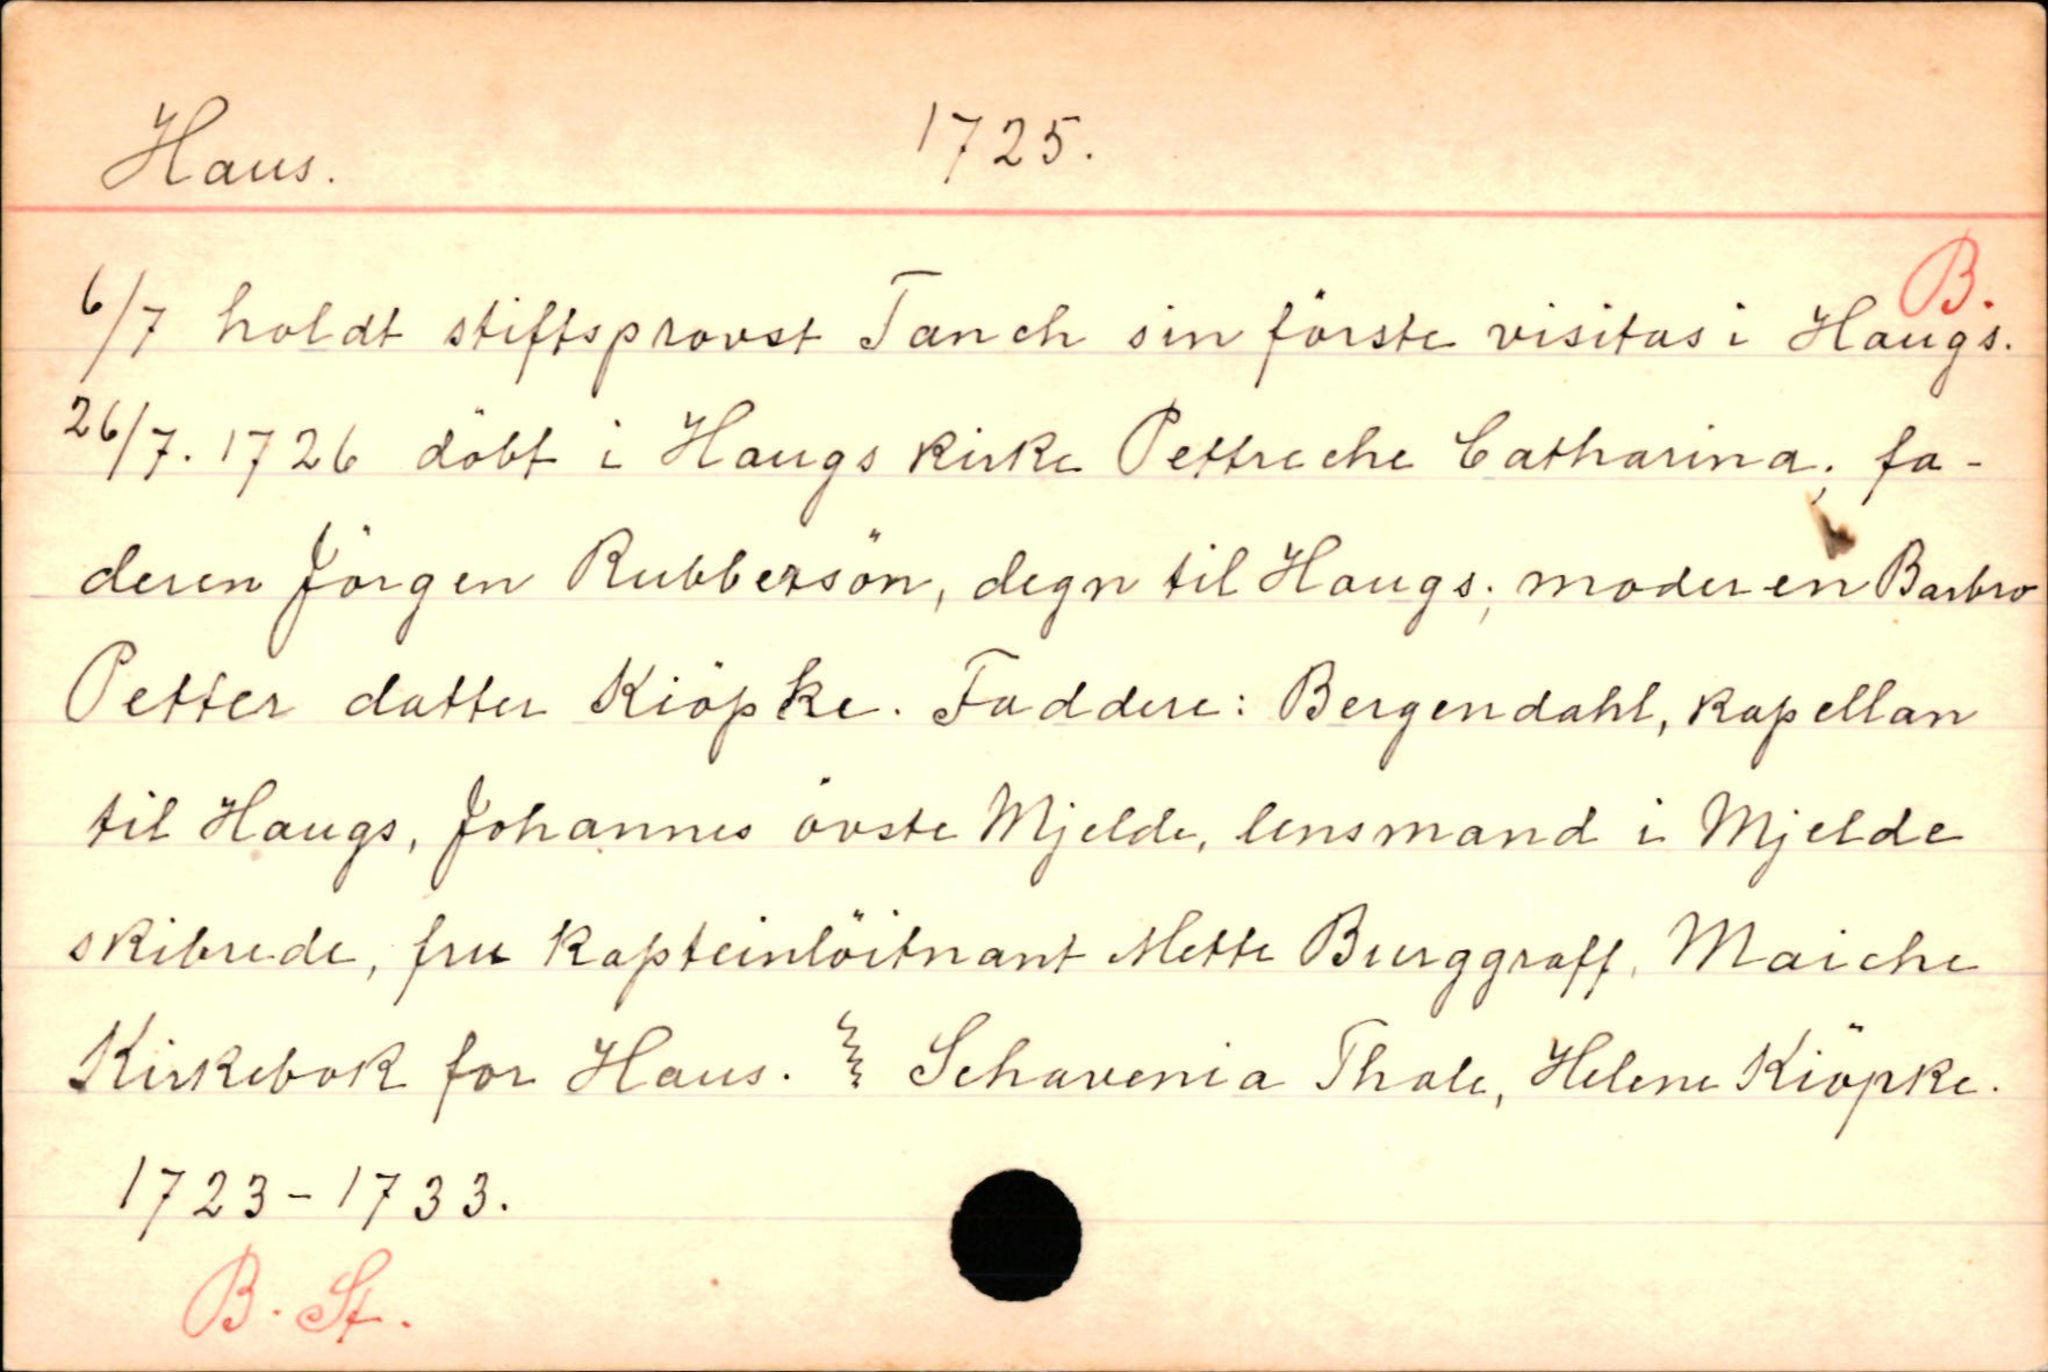 Haus. 1725.
B.
6/7 holdt stiftsprovst Tanch sin förste visitas i Haugs.
26/7. 1726 döbt i Haugs kirke Pettreche Catharina; fa-
deren Jörgen Rubbersön, degn til Haugs; moderen Barbro
Petter datter Kiöpke. Faddere: Bergendahl, kapellan
til Haugs, Johannes övste Mjelde, lensmand i Mjelde
skibrede, fru kapteinlöitnant Mette Burggraff, Maiche
Kirkebok for Haus. Schavenia Thale, Helene Kiöpke.
1723-1733.
B. St.